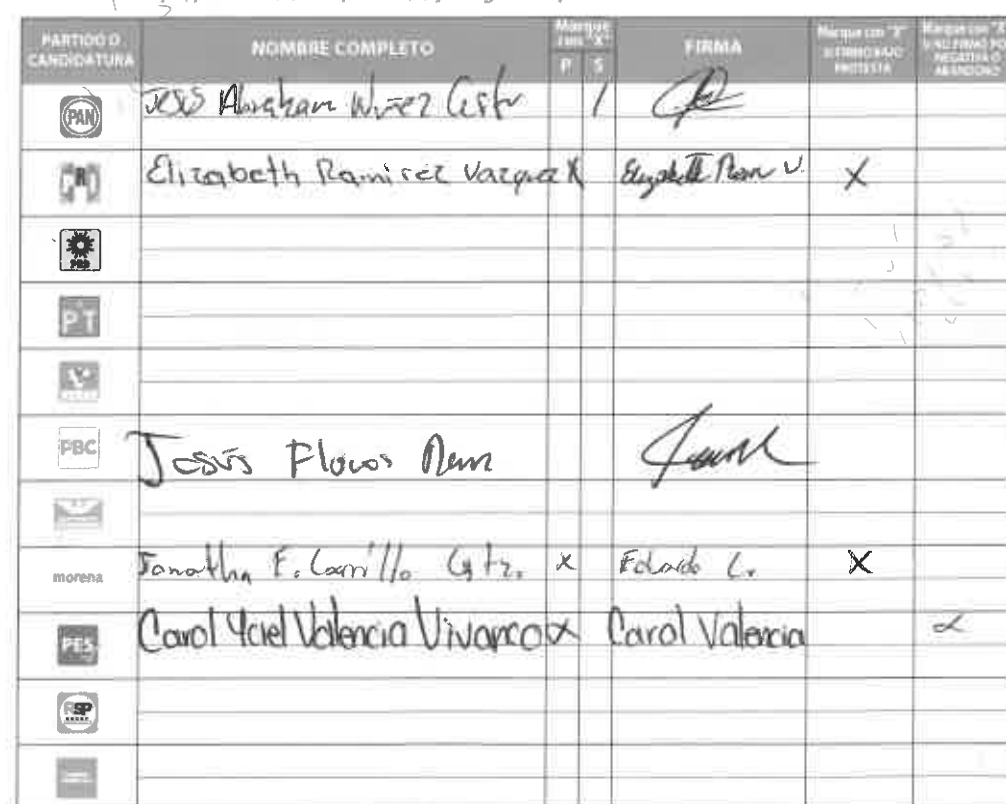 PARTIDO O CANDIDATURA
NOMBRE COMPLETO
Marque con "X"
P S
FIRMA
Marque con "X" SI FIRMÓ BAJO PROTESTA
Marque con "X" SI NO FIRMÓ POR NEGATIVA O ABANDONO
PAN Jesús Abraham /
R Elizabeth Ramirez Vazquez X Elizabeth V. X
PRD
PT
PBC Jesús
morena F. Carrillo x Eduardo C. X
PES Carol Yael Valencia Vivanco x Carol Valencia x
RSP